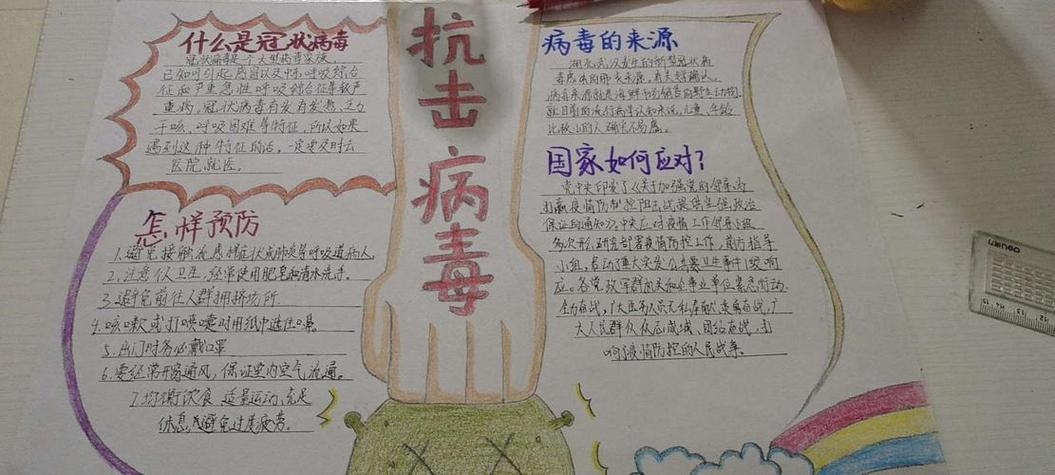 抗击病毒
什么是冠状病毒
冠状病毒是个大型病毒家族，
已知可引起感冒以及中东呼吸综合
征和严重急性呼吸综合征等较严
重病，冠状病毒有发有发热，乏力
干咳，呼吸困难等特征，所以如果
遇到这种特征的话，一定要及时去
医院就医。
怎样预防
1.避免接触有感冒症状或肺炎等呼吸道病人。
2.注意个人卫生，经常使用肥皂和清水洗手。
3.避免前往人群拥挤场所.
4.咳嗽或打喷嚏时用纸巾遮住口鼻
5.出门时务必戴口罩
6.要经常开窗通风，保证室内空气流通。
7.均衡饮食 适量运动，充足
休息，避免过度疲劳。
病毒的来源
湖北武汉发生的新型冠状病
病毒来源就是海鲜市场销售的野生动物.
就目前的流行病学认知来说，儿童，年龄
比较小的人确实不易感。
国家如何应对?
党中央印发了《关于加强党的领导为
打赢疫情防控阻击战提供坚强政治
保证的通知》，中央应对疫情工作领导小组
多次形，研究部署疫情防控工作，
小组，启动重大突发公共卫生事件I级响
应。各党政军群机关和企事业单位紧急行动.
全力奋战，广大医务人员无私奉献英勇奋战，广
大人民群众众志成城，团结奋战，打
响了疫情防控的人民战争。
deli